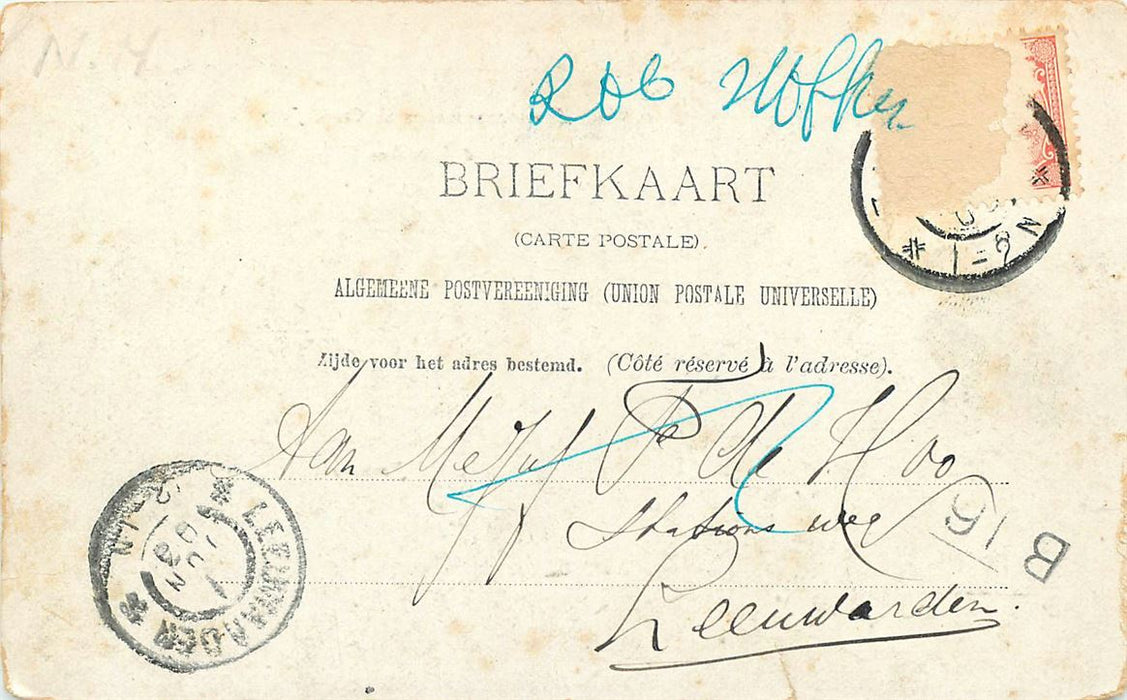 N.H
Rob
BRIEFKAART
(CARTE POSTALE).
ALGEMEENE POSTVEREENIGING (UNION POSTALE UNIVERSELLE)
Zijde voor het adres bestemd. (Côté réservé à l'adresse).
1-8 N
Aan Mejuf F de Hoo
Stationsweg
Leeuwarden.
LEEUWARDEN
B
15